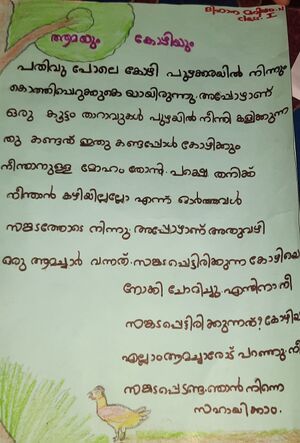 class: I
ആമയും കോഴിയും
പതിവു പോലെ കോഴി പുഴക്കരയിൽ നിന്നും
കൊത്തിപെറുക്കുകെ യായിരുന്നു. അപ്പോഴാണ്
ഒരു കൂട്ടം താറാവുകൾ പുഴയിൽ നീന്തി കളിക്കുന്ന
തു കണ്ടത് ഇതു കണ്ടപ്പോൾ കോഴിക്കും
നീന്താനുള്ള മോഹം തോന്നി. പക്ഷെ തനിക്ക്
നീന്താൻ കഴിയില്ലല്ലോ എന്ന് ഓർത്തവൾ
സങ്കടത്തോടെ നിന്നു. അപ്പോഴാണ് അതുവഴി
ഒരു ആമച്ചാർ വന്നത്. സങ്കടപ്പെട്ടിരിക്കുന്ന കോഴിയെ
നോക്കി ചോദിച്ചു എന്തിനാ നീ
സങ്കടപ്പെട്ടിരിക്കുന്നത്? കോഴിയ
എല്ലാം ആമച്ചാരോട് പറഞ്ഞു. നീ
സങ്കടപ്പെടണ്ട. ഞാൻ നിന്നെ
സഹായിക്കാം.